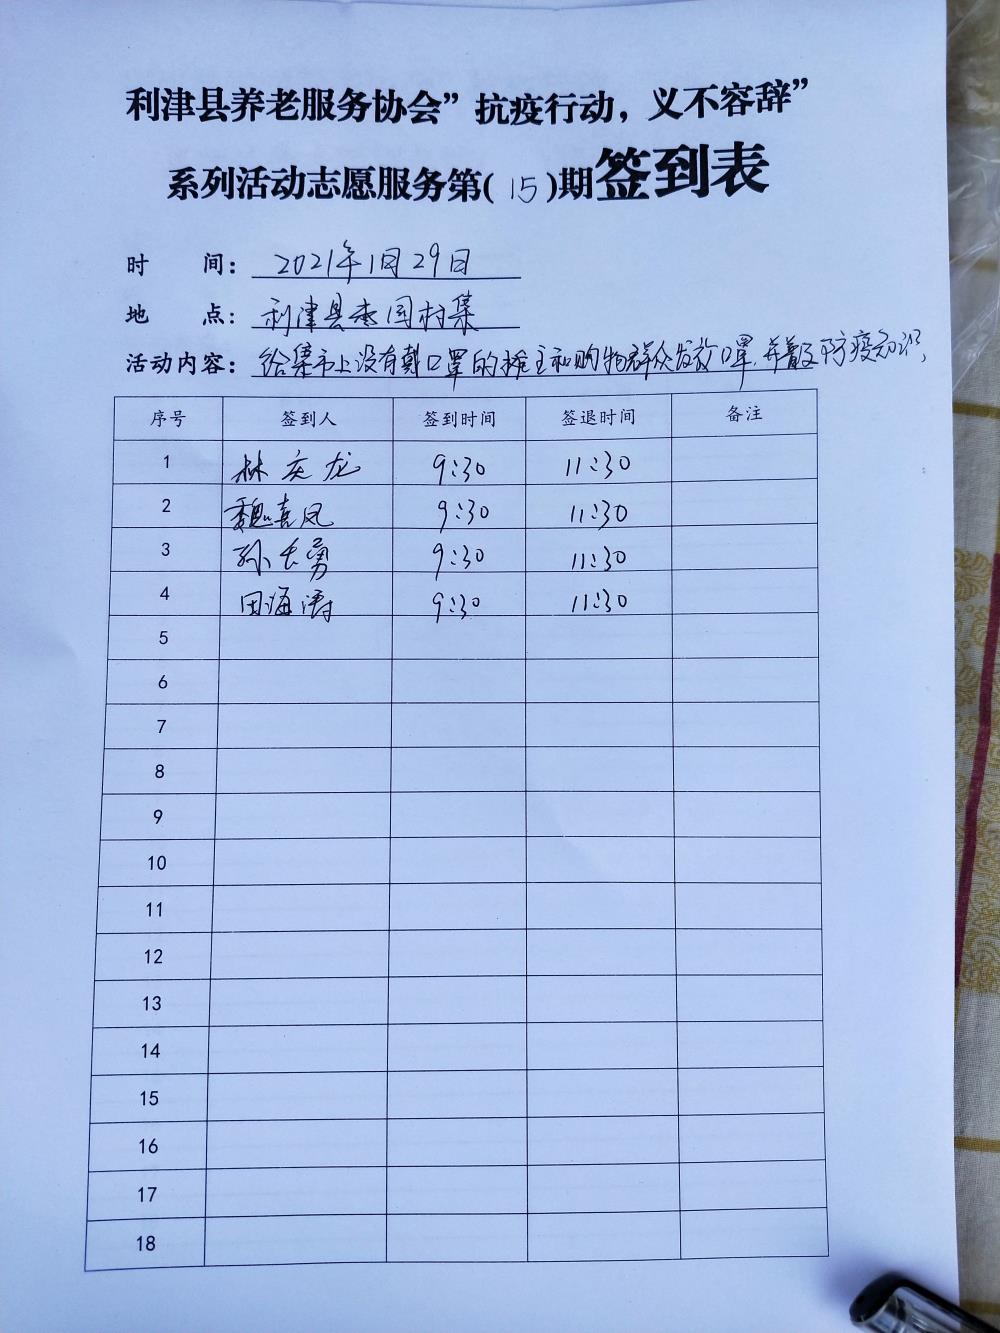 利津县养老服务协会”抗疫行动，义不容辞”
系列活动志愿服务第( 15 )期签到表
时 间： 2021年1月29日
地 点： 利津县枣园村集
活动内容： 给集市上没有戴口罩的摊主和购物群众发放口罩,并普及防疫知识,
序号 签到人 签到时间 签退时间 备注
1 林庆龙 9:30 11:30
2 魏喜凤 9:30 11:30
3 孙长勇 9:30 11:30
4 田海涛 9:30 11:30
5
6
7
8
9
10
11
12
13
14
15
16
17
18